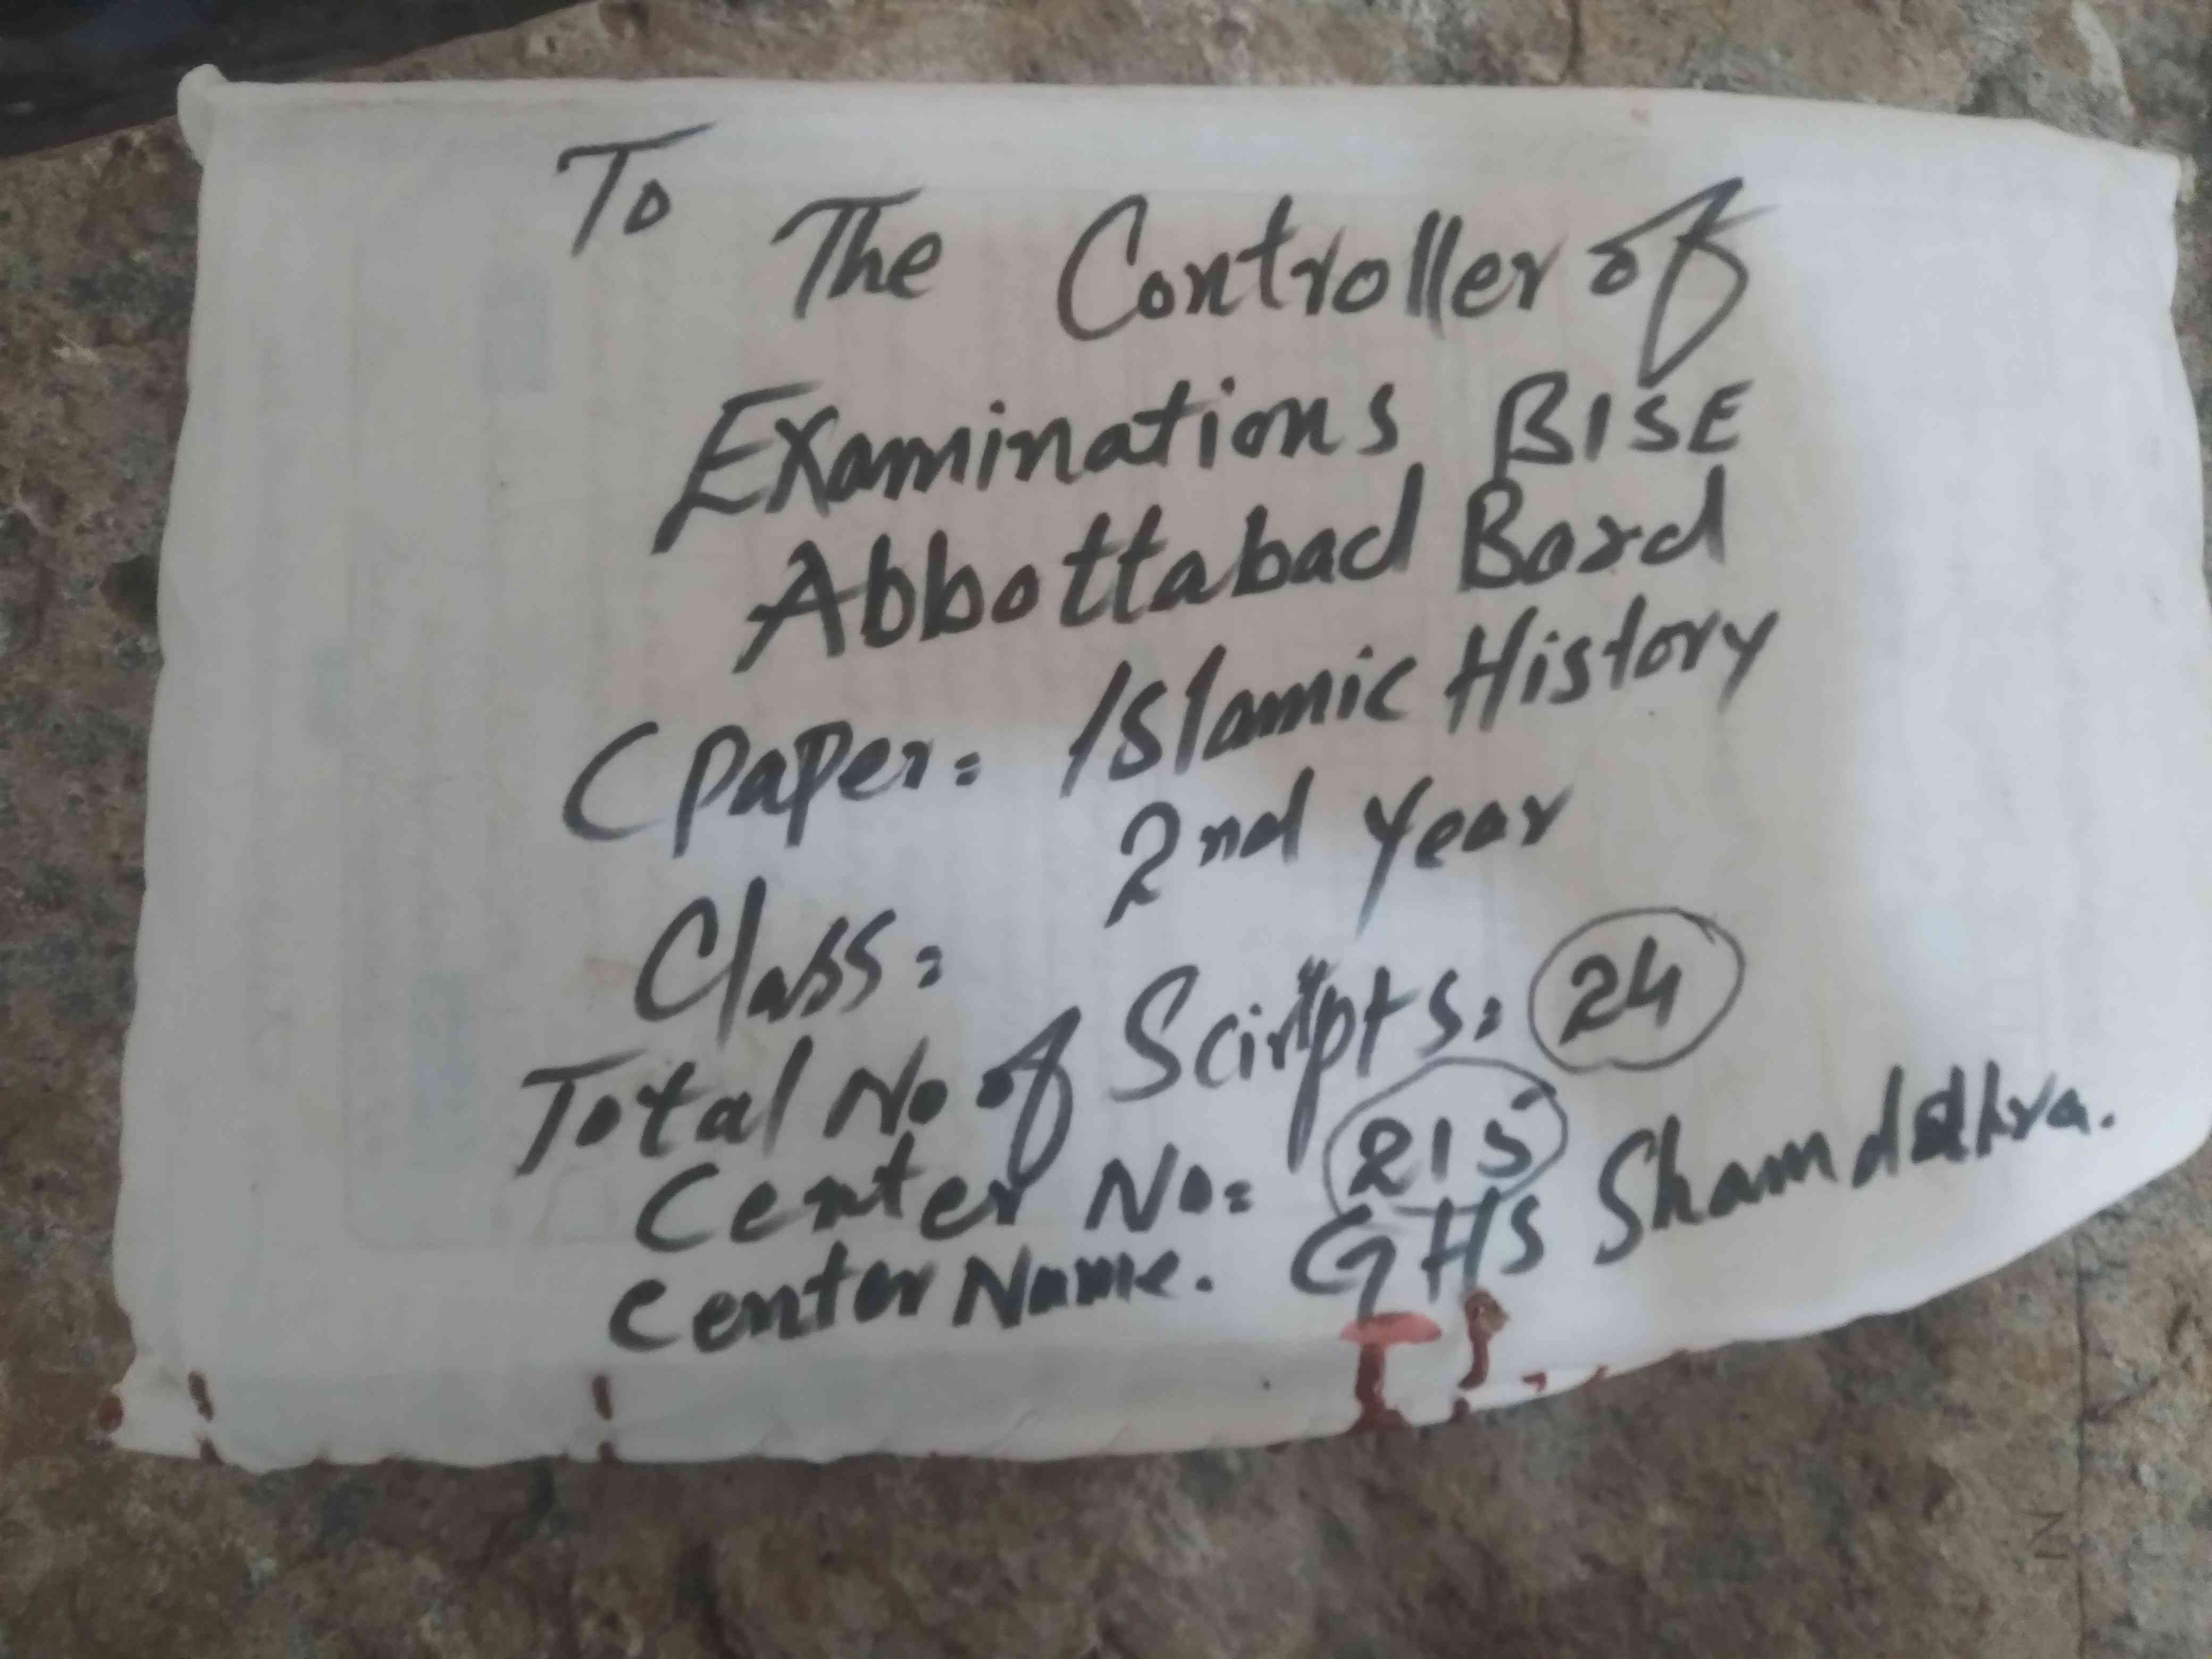 To
The Controller of
Examinations BISE
Abbottabad Board
(Paper: Islamic History
2nd Year
Class:
Total No of Scirtpts: 24
Center No: 215
Center Name. GHS Shamdathra.